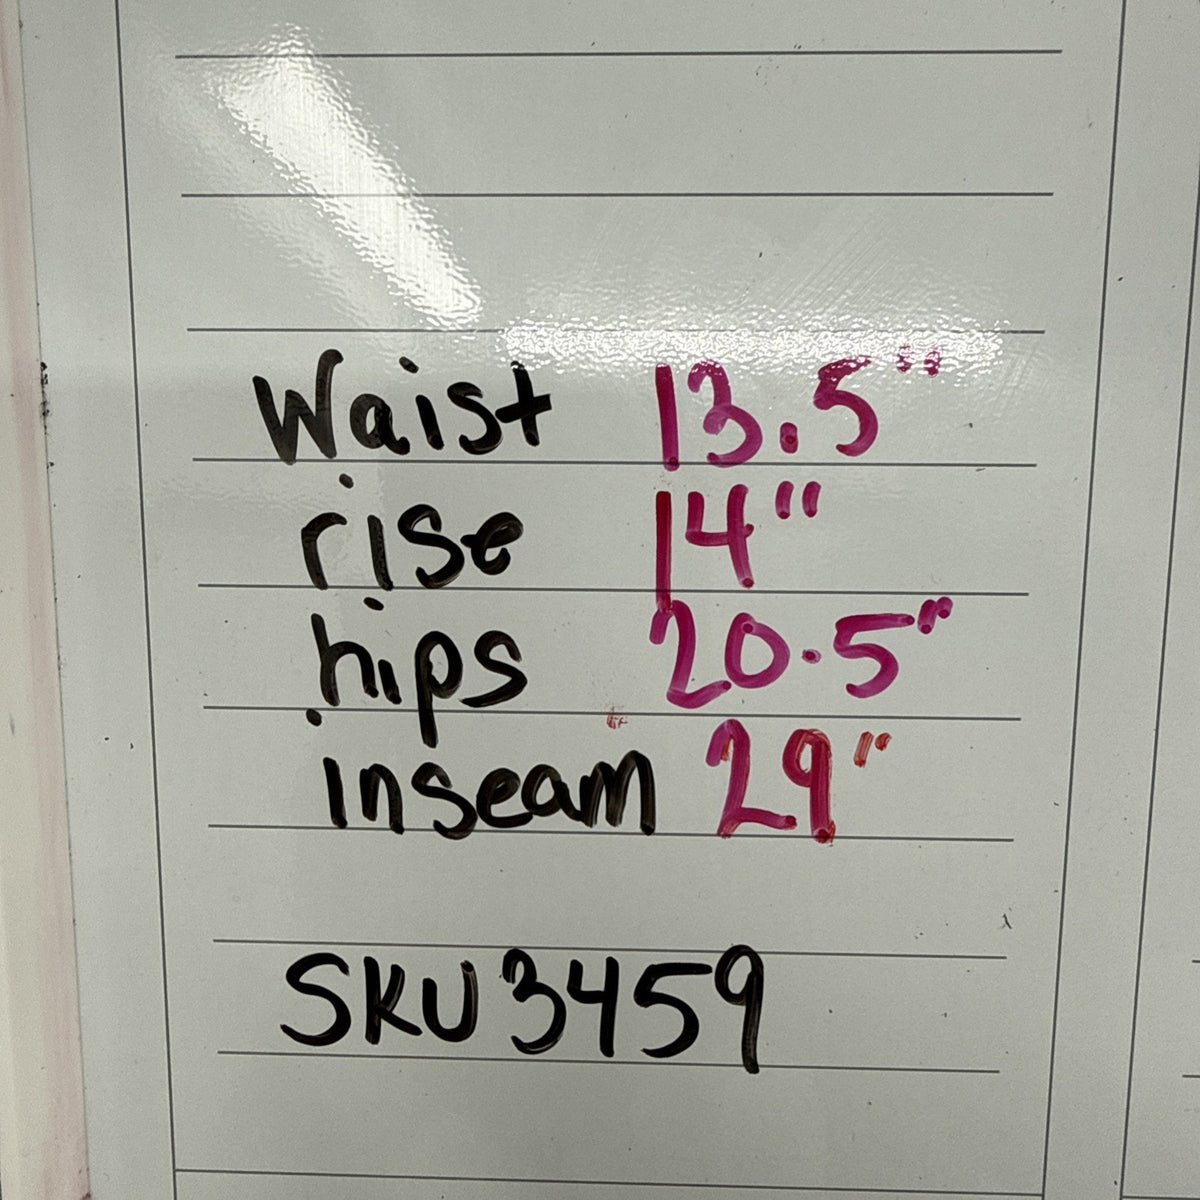 Waist 13.5"
rise 14"
hips 20.5"
inseam 29"
SKU 3459